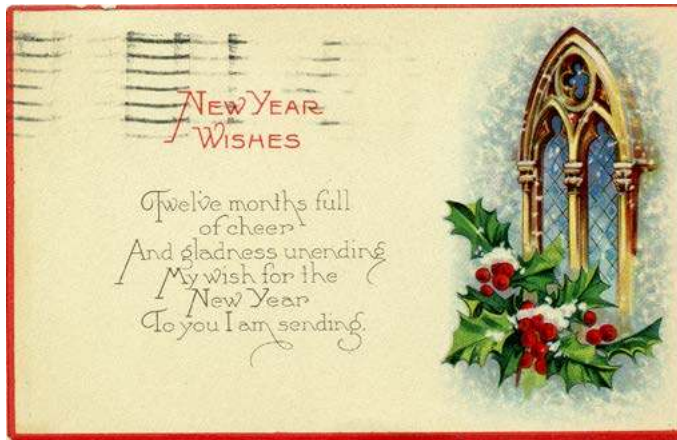 New Year
Wishes
Twelve months full
of cheer
And gladness unending
My wish for the
New Year
To you I am sending.